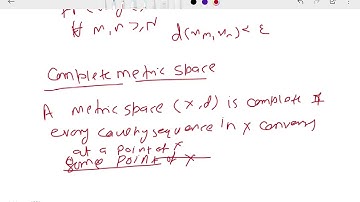 ∀ m, n ≥ N d(xm, xn) < ε
Complete metric space
A metric space (X, d) is complete if
every cauchy sequence in X convery
at a point of X
some point of X